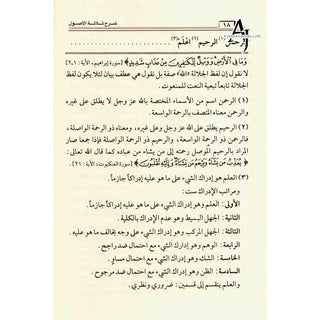 ١٨ شرح ثلاثة الأصول
الرحمن(١) الرحيم(٢) اعلم(٣)
وَمَا فِي الْأَرْضِ وَوَيْلٌ لِلْكَافِرِينَ مِنْ عَذَابٍ شَدِيدٍ﴾ [سورة إبراهيم، الآية: ١-٢]
لا نقول إن لفظ الجلالة "الله" صفة بل نقول هي عطف بيان لئلا يكون لفظ
الجلالة تابعاً تبعية النعت للمنعوت.
(١) الرحمن اسم من الأسماء المختصة بالله عز وجل لا يطلق على غيره
والرحمن معناه المتصف بالرحمة الواسعة.
(٢) الرحيم يطلق على الله عز وجل وعلى غيره، ومعناه ذو الرحمة الواصلة،
فالرحمن ذو الرحمة الواسعة، والرحيم ذو الرحمة الواصلة فإذا جمعا صار
المراد بالرحيم الموصل رحمته إلى من يشاء من عباده كما قال الله تعالى:
﴿يُعَذِّبُ مَنْ يَشَاءُ وَيَرْحَمُ مَنْ يَشَاءُ وَإِلَيْهِ تُقْلَبُونَ﴾ [سورة العنكبوت، الآية: ٢١].
(٣) العلم هو إدراك الشيء على ما هو عليه إدراكاً جازماً.
ومراتب الإدراك ست:
الأولى: العلم وهو إدراك الشيء على ما هو عليه إدراكاً جازماً.
الثانية: الجهل البسيط وهو عدم الإدراك بالكلية.
الثالثة: الجهل المركب وهو إدراك الشيء على وجه يخالف ما هو عليه.
الرابعة: الوهم وهو إدراك الشيء مع احتمال ضد راجح.
الخامسة: الشك وهو إدراك الشيء مع احتمال مساو.
السادسة: الظن وهو إدراك الشيء مع احتمال ضد مرجوح.
والعلم ينقسم إلى قسمين: ضروري ونظري.